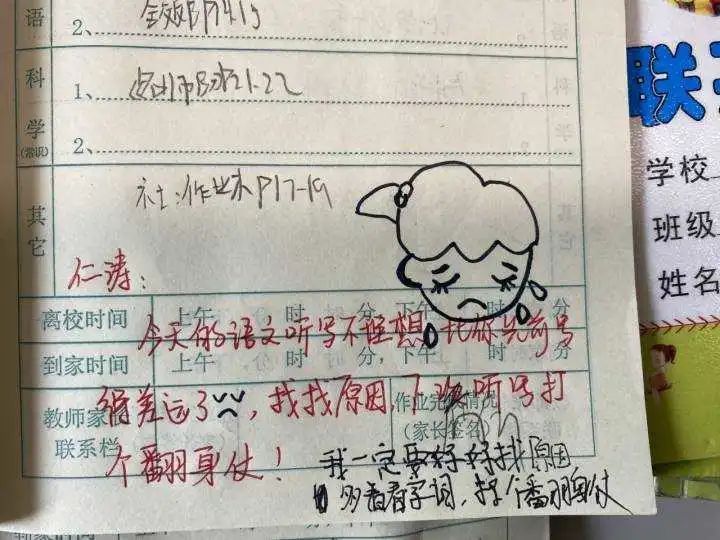 语
2、
科
学
(常识)
1、
2、
其
它
社:作业本P17-19
仁涛:
离校时间 上午 时 分,下午 时 分
今天的语文听写不理想,比你先前写
到家时间 上午 时 分,下午 时 分
得差远了,找找原因,下次听写打
教师家长
联系栏
作业完成情况
(家长签名)
个翻身仗!
我一定要好好找原因
多看看字词,打个翻身仗
联
学校
班级
姓名